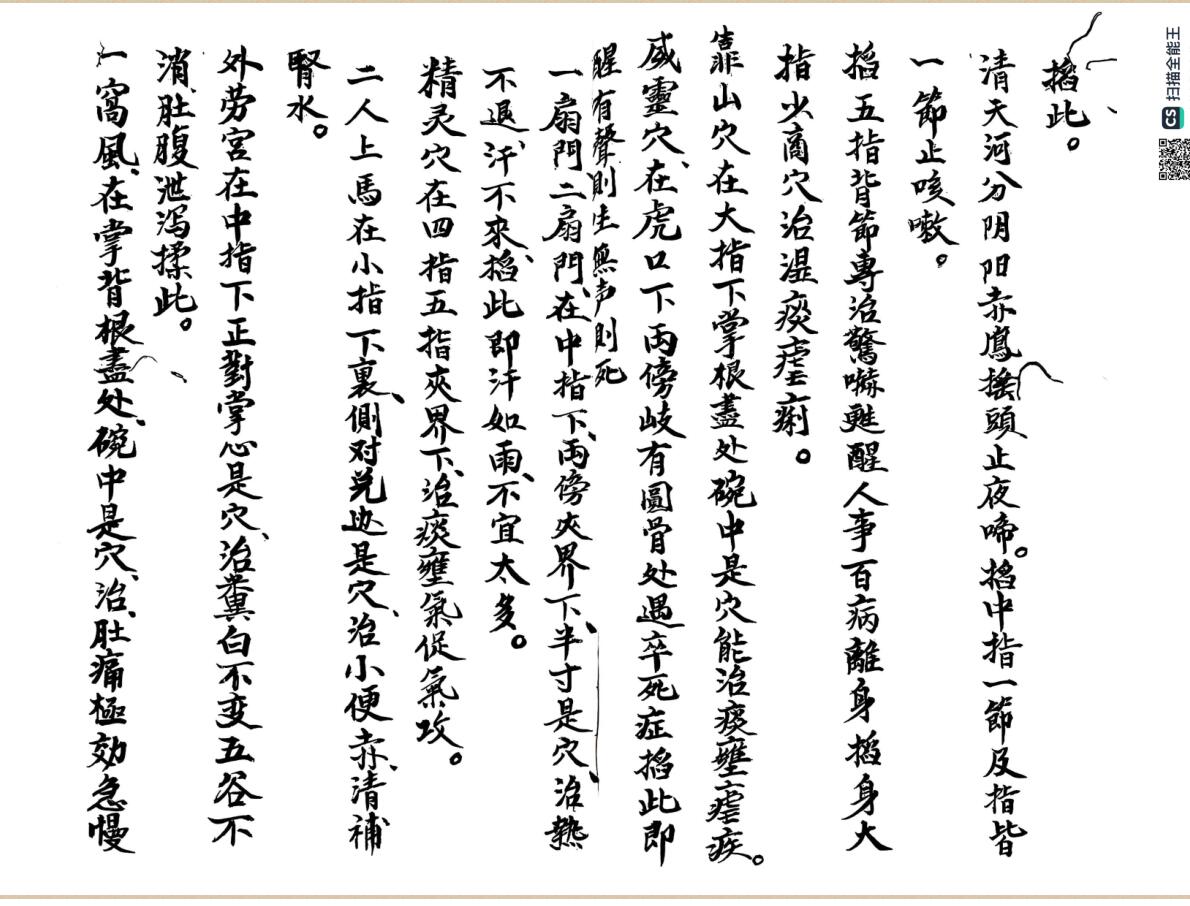 掐此。
清天河分阴阳赤鳳搖頭止夜啼。掐中指一節及指皆
一節止咳嗽。
掐五指背節專治驚嚇甦醒人事百病離身掐身大
指少商穴治湿痰虐痢。
靠山穴在大指下掌根盡处碗中是穴能治痰壅虐疾。
威靈穴、在虎口下兩傍岐有圓骨处遇卒死症掐此即
醒有聲則生無声則死
一扇門二扇門、在中指下、兩傍夾界下、半寸是穴、治熱
不退、汗不來、掐此即汗如雨、不宜太多。
精灵穴在四指五指夾界下、治痰壅氣促氣攻。
二人上馬在小指下裏、側对兑边是穴、治小便赤、清補
腎水。
外劳宮在中指下正對掌心是穴、治糞白不变五谷不
消、肚腹泄瀉揉此。
一窩風、在掌背根盡处、碗中是穴、治、肚痛極効急慢
CS 扫描全能王